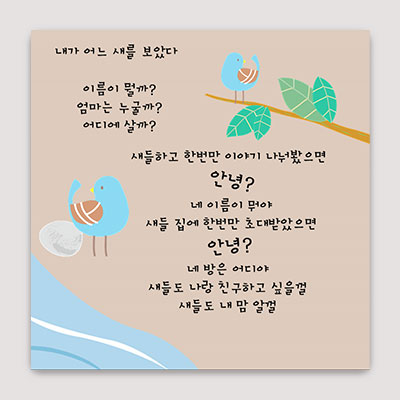 내가 어느 새를 보았다
이름이 뭘까?
엄마는 누굴까?
어디에 살까?
새들하고 한번만 이야기 나눠봤으면
안녕?
네 이름이 뭐야
새들 집에 한번만 초대받았으면
안녕?
네 방은 어디야
새들도 나랑 친구하고 싶을껄
새들도 내 맘 알껄